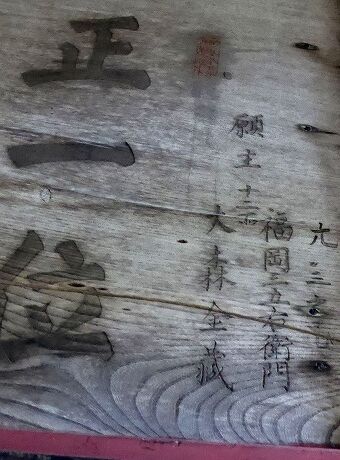 正一位
願主
福岡三五右衛門
大森金藏